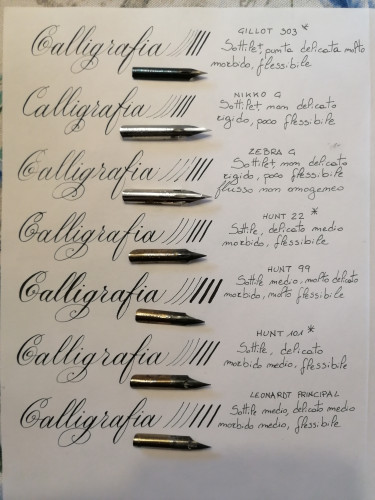 Calligrafia
GILLOT 303 *
Sottile, punta delicata molto
morbido, flessibile
Calligrafia
NIKKO G
Sottile, non delicato
rigido, poco flessibile
Calligrafia
ZEBRA G
Sottile, non delicato
rigido, poco flessibile
flusso non omogeneo
Calligrafia
HUNT 22 *
Sottile, delicato medio
morbido, flessibile
Calligrafia
HUNT 99
Sottile medio, molto delicato
morbido, molto flessibile
Calligrafia
HUNT 101 *
Sottile, delicato
morbido medio, flessibile
Calligrafia
LEONARDT PRINCIPAL
Sottile medio, delicato medio
morbido medio, flessibile